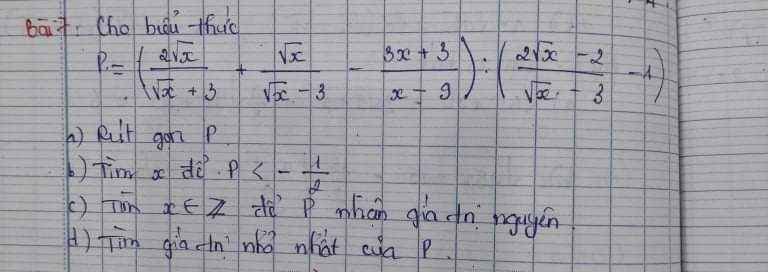 Bài 7: Cho biểu thức
P = ( 2√x / (√x + 3) + √x / (√x - 3) - (3x + 3) / (x - 9) ) : ( (2√x - 2) / (√x - 3) - 1 )
a) Rút gọn P.
b) Tìm x để P < - 1/2
c) Tìm x ∈ Z để P nhận giá trị nguyên.
d) Tìm giá trị nhỏ nhất của P.